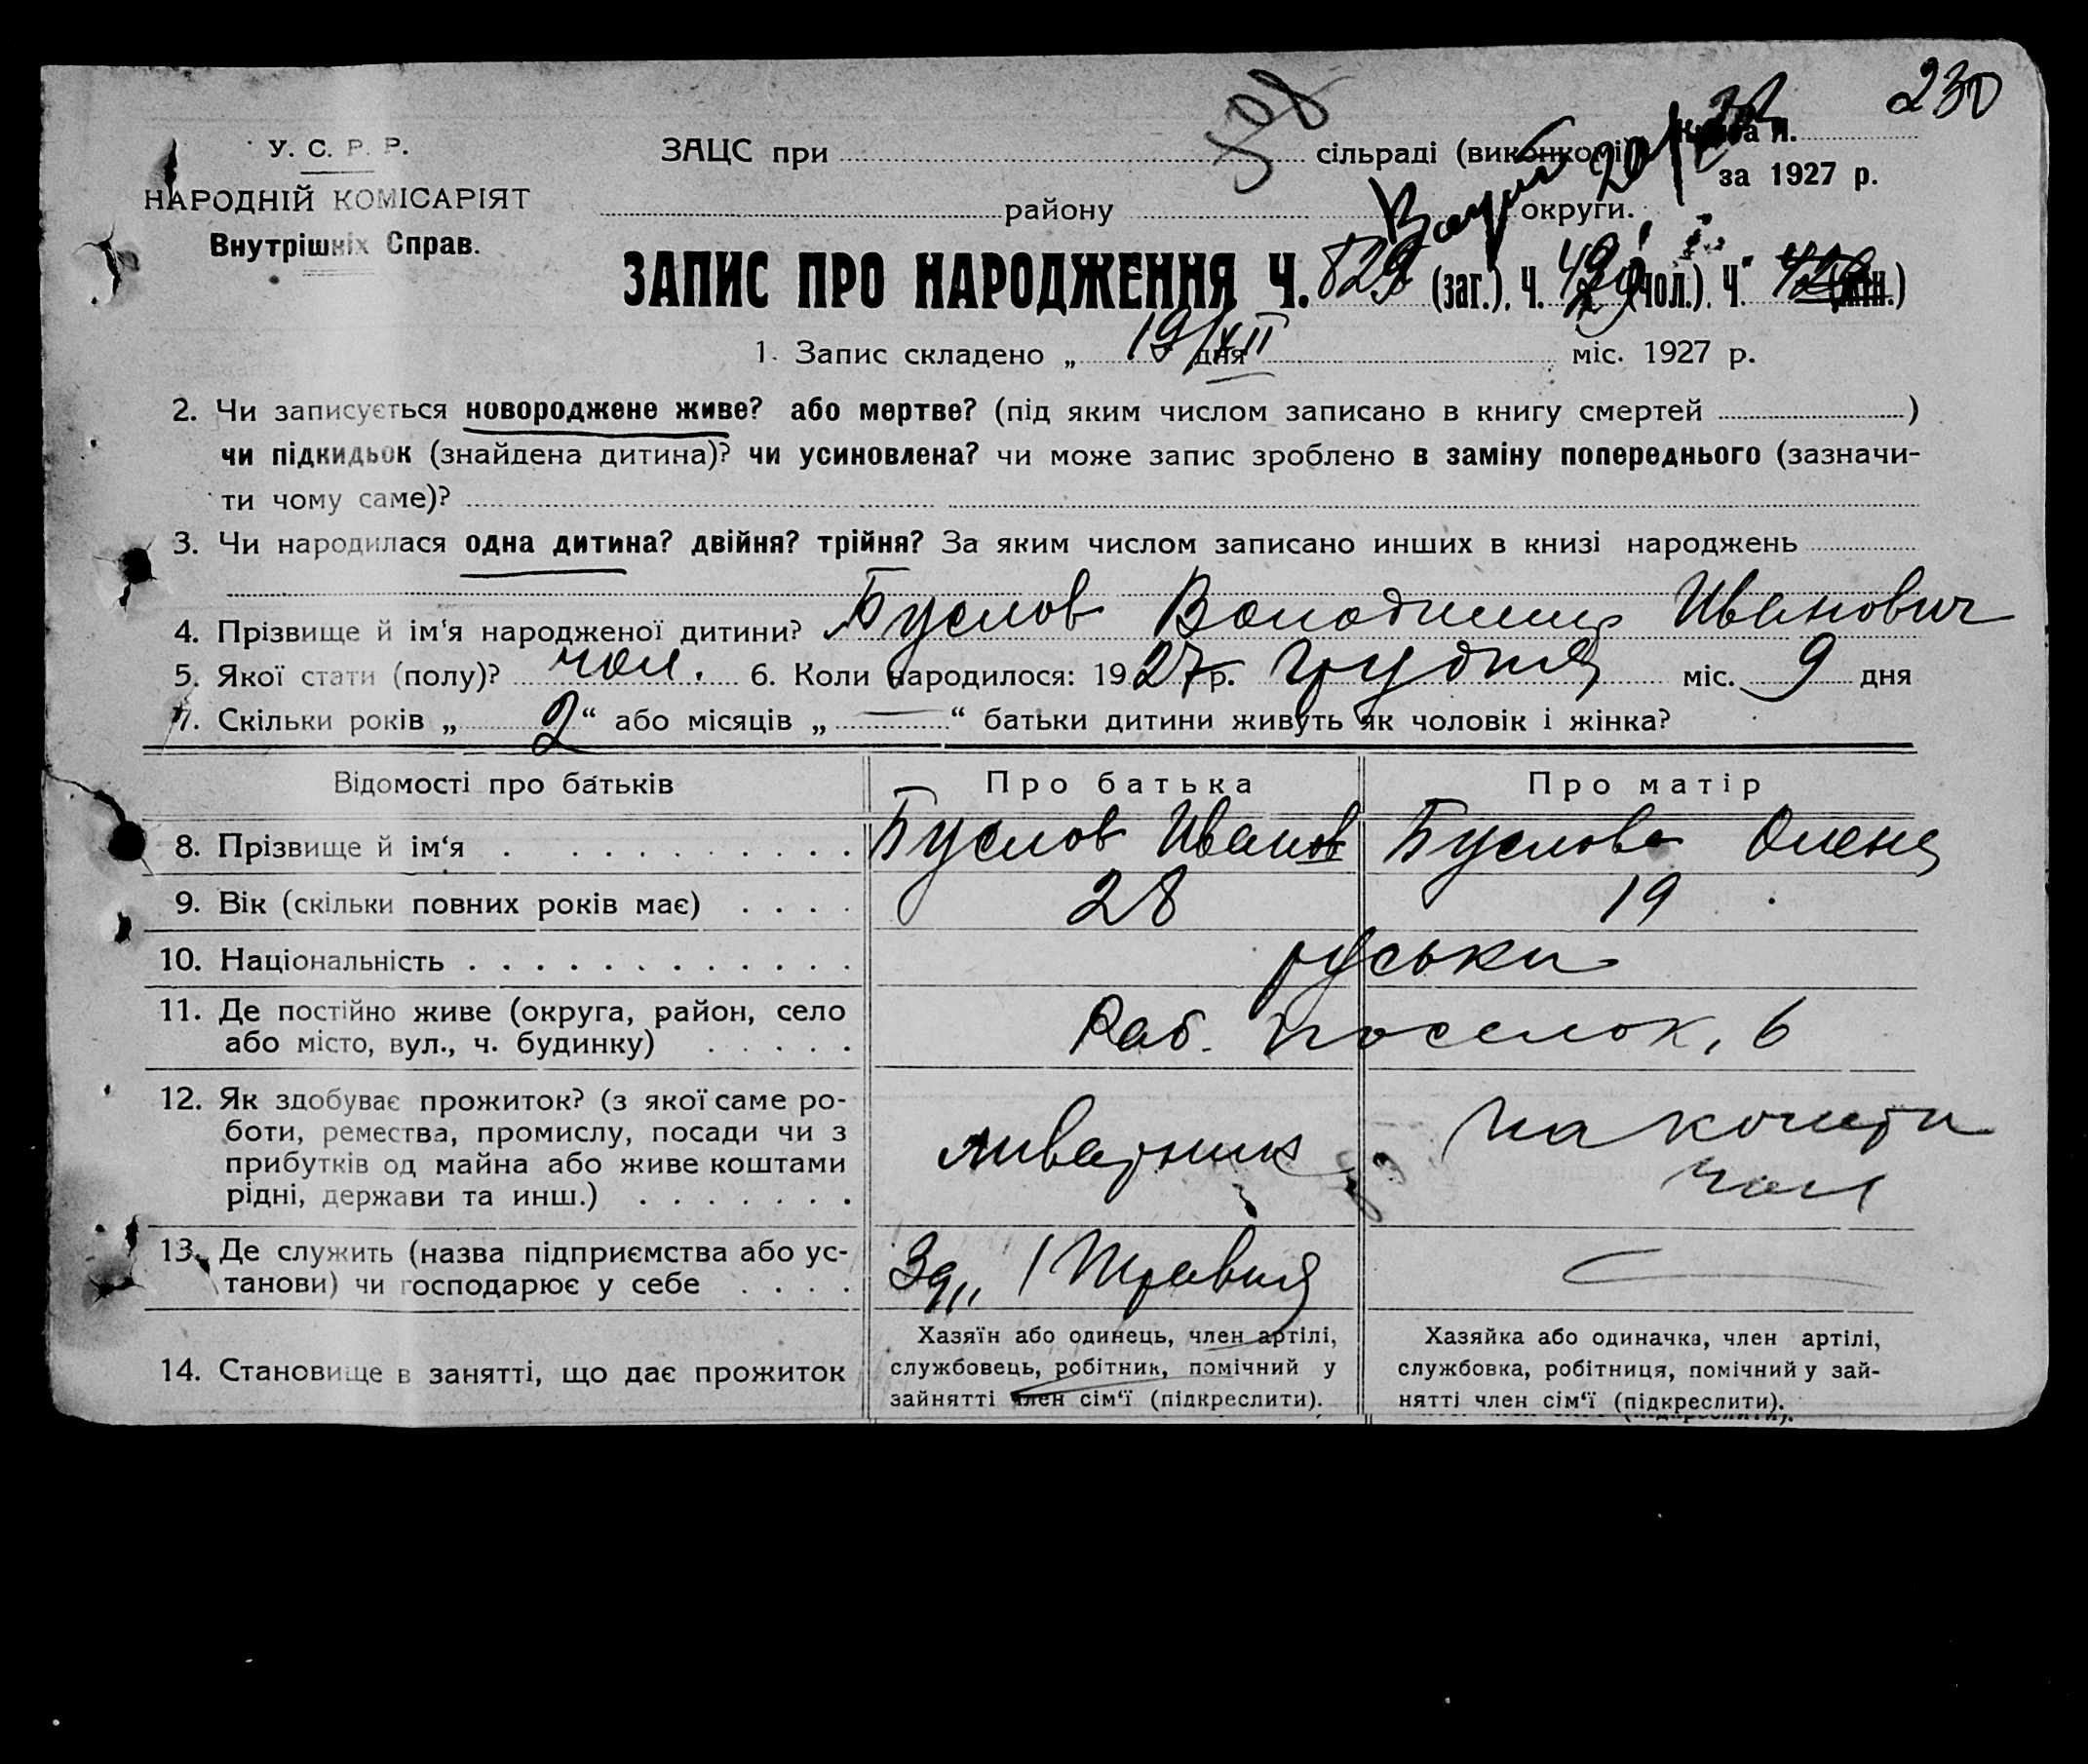 230
508
У. С. Р. Р. ЗАЦС при сільраді (виконкомі) Книга
за 1927 р.
НАРОДНІЙ КОМІСАРІЯТ району округи.
Внутрішніх Справ.
ЗАПИС ПРО НАРОДЖЕННЯ Ч. 829 (заг.). Ч. (чол.). Ч. (жін.)
1. Запис складено „ 19/XII дня міс. 1927 р.
2. Чи записується новороджене живе? або мертве? (під яким числом записано в книгу смертей )
чи підкидьок (знайдена дитина)? чи усиновлена? чи може запис зроблено в заміну попереднього (зазначи-
ти чому саме)?
3. Чи народилася одна дитина? двійня? трійня? За яким числом записано инших в книзі народжень
4. Прізвище й ім‘я народженої дитини? Буслов Володимир Иванович
5. Якої стати (полу)? чол. 6. Коли народилося: 1927 р. грудня міс. 9 дня
7. Скільки років „ 2 “ або місяців „ — “ батьки дитини живуть як чоловік і жінка?
Відомості про батьків Про батька Про матір
8. Прізвище й ім‘я Буслов Иван Буслова Олена
9. Вік (скільки повних років має) 28 19
10. Національність руськи
11. Де постійно живе (округа, район, село
або місто, вул., ч. будинку) Раб. поселок, 6
12. Як здобуває прожиток? (з якої саме ро-
боти, ремества, промислу, посади чи з
прибутків од майна або живе коштами
рідні, держави та инш.) ливарник на кошти
чол
13. Де служить (назва підприємства або ус-
танови) чи господарює у себе Зд. 1 Травня —
14. Становище в занятті, що дає прожиток
Хазяїн або одинець, член артілі,
службовець, робітник, помічний у
зайнятті член сім‘ї (підкреслити).
Хазяйка або одиначка, член артілі,
службовка, робітниця, помічний у зай-
нятті член сім‘ї (підкреслити).